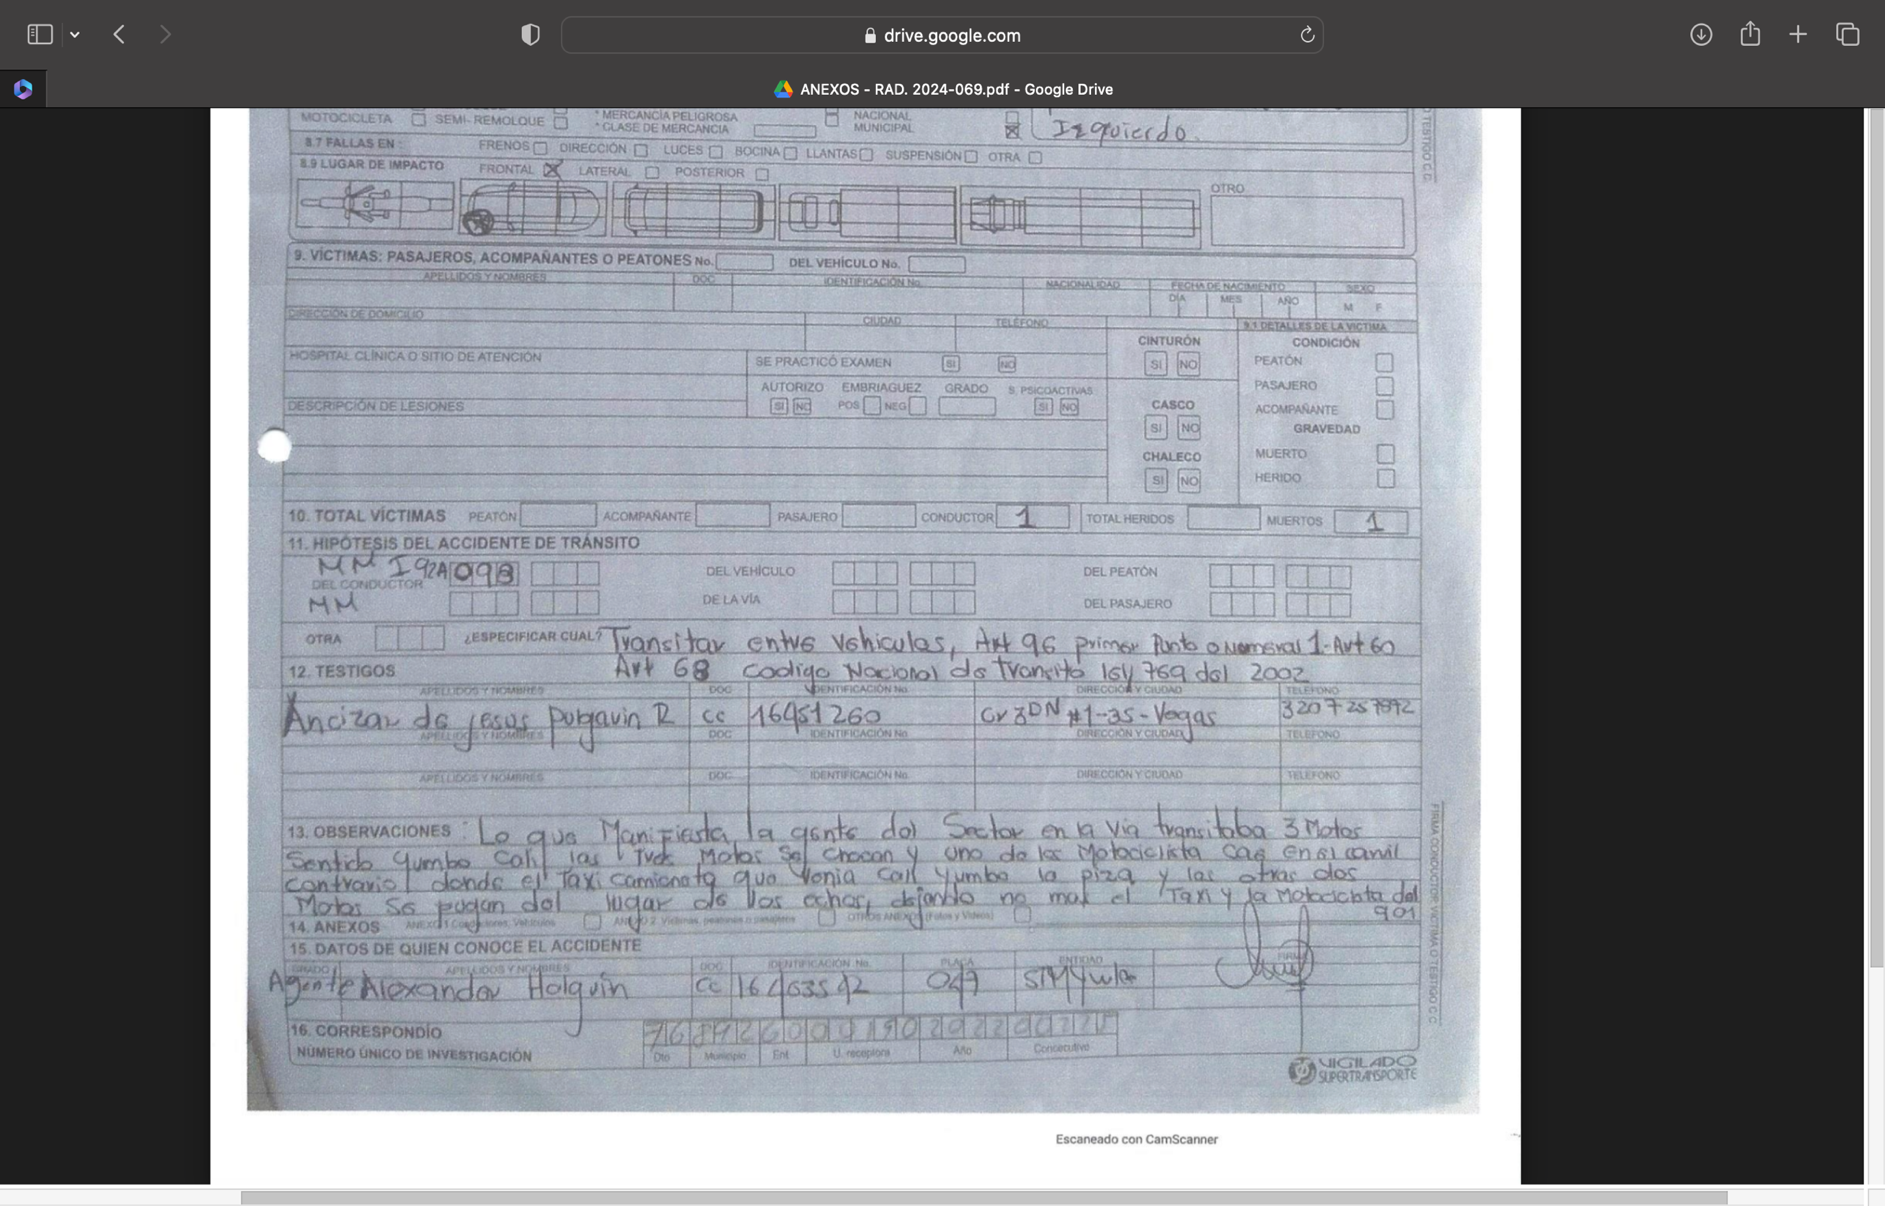 drive.google.com
ANEXOS - RAD. 2024-069.pdf - Google Drive
MOTOCICLETA SEMI-REMOLQUE * MERCANCÍA PELIGROSA NACIONAL
* CLASE DE MERCANCIA MUNICIPAL Izquierdo.
8.7 FALLAS EN: FRENOS DIRECCIÓN LUCES BOCINA LLANTAS SUSPENSIÓN OTRA
8.9 LUGAR DE IMPACTO FRONTAL LATERAL POSTERIOR
OTRO
9. VÍCTIMAS: PASAJEROS, ACOMPAÑANTES O PEATONES No. DEL VEHÍCULO No.
APELLIDOS Y NOMBRES DOC IDENTIFICACIÓN No. NACIONALIDAD FECHA DE NACIMIENTO SEXO
DÍA MES AÑO M F
DIRECCIÓN DE DOMICILIO CIUDAD TELÉFONO 9.1 DETALLES DE LA VÍCTIMA
CINTURÓN CONDICIÓN
HOSPITAL CLÍNICA O SITIO DE ATENCIÓN SE PRACTICÓ EXAMEN SI NO SI NO PEATÓN
AUTORIZO EMBRIAGUEZ GRADO S. PSICOACTIVAS PASAJERO
DESCRIPCIÓN DE LESIONES SI NO POS NEG SI NO CASCO ACOMPAÑANTE
SI NO GRAVEDAD
CHALECO MUERTO
SI NO HERIDO
10. TOTAL VÍCTIMAS PEATÓN ACOMPAÑANTE PASAJERO CONDUCTOR 1 TOTAL HERIDOS MUERTOS 1
11. HIPÓTESIS DEL ACCIDENTE DE TRÁNSITO
MM I92A 098 DEL VEHÍCULO DEL PEATÓN
DEL CONDUCTOR
MM DE LA VÍA DEL PASAJERO
OTRA ¿ESPECIFICAR CUAL? Transitar entre vehiculos, Art 96 primer Punto o Numeral 1-Art 60
12. TESTIGOS Art 68 codigo Nacional de transito ley 769 del 2002
APELLIDOS Y NOMBRES DOC IDENTIFICACIÓN No. DIRECCIÓN Y CIUDAD TELÉFONO
Ancizar de jesus R cc 16451260 Cr 3DN #1-35-Vegas
APELLIDOS Y NOMBRES DOC IDENTIFICACIÓN No. DIRECCIÓN Y CIUDAD TELÉFONO
APELLIDOS Y NOMBRES DOC IDENTIFICACIÓN No. DIRECCIÓN Y CIUDAD TELÉFONO
13. OBSERVACIONES: Lo que Manifiesta la gente del Sector en la via transitaba 3 Motos
Sentido Yumbo Cali las tres Motos Se chocan y uno de los Motociclista cae en el carril
contrario donde el Taxi camioneta que Venia Cali Yumbo la piza y las otras dos
Motos Se fugan del lugar de los echos, dejando no mas el Taxi y la Motocicleta del
901
14. ANEXOS ANEXO 1 Conductores, Vehículos ANEXO 2 Víctimas, peatones o pasajeros OTROS ANEXOS (Fotos y Videos)
15. DATOS DE QUIEN CONOCE EL ACCIDENTE
GRADO APELLIDOS Y NOMBRES DOC IDENTIFICACIÓN No. PLACA ENTIDAD FIRMA
Agente Alexander Holguin cc 047
16. CORRESPONDÍO
NÚMERO ÚNICO DE INVESTIGACIÓN Dto Municipio Ent U. receptora Año Consecutivo
VIGILADO
SUPERTRANSPORTE
FIRMA CONDUCTOR, VÍCTIMA O TESTIGO C.C.
Escaneado con CamScanner